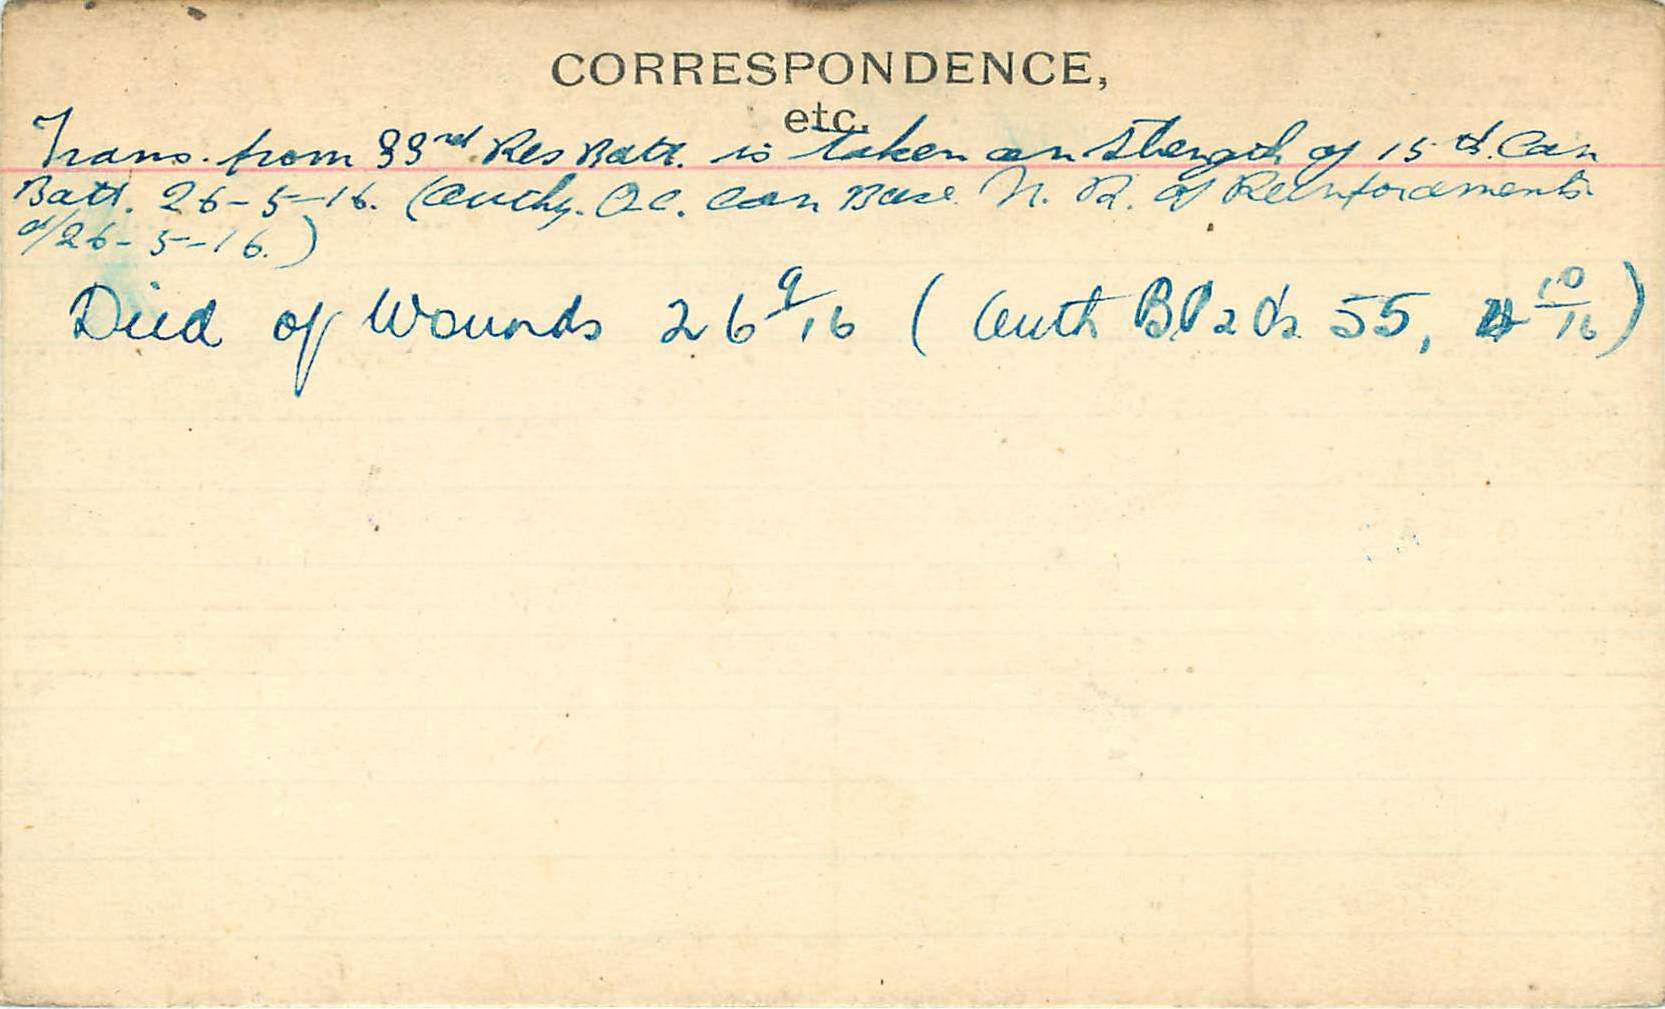 CORRESPONDENCE,
etc.
Trans. from 33rd Res Batt. is taken on strength of 15th. Can
Batt. 26-5-16. (Authy. O.C. Can Base. N. R. of Reinforcements
d/26-5-16.)
Died of Wounds 26 9/16 (Auth 55, 10/16)